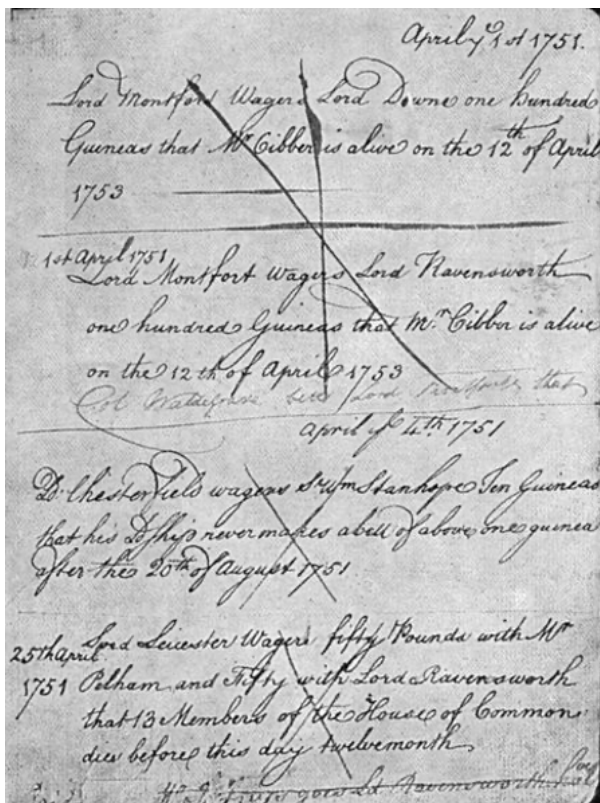 April ye 1st 1751.
Lord Montford Wagers Lord Downe one hundred
Guineas that Mr Cibber is alive on the 12th of April
1753
1st April 1751
Lord Montfort Wagers Lord Ravensworth
one hundred Guineas that Mr Cibber is alive
on the 12th of April 1753
Col Waldegrave bets Lord that
April ye 4th 1751
Ld. Chesterfield wagers Sr Wm Stanhope Ten Guineas
that his Ldship never makes a bett of above one guinea
after the 20th of August 1751
Lord Leicester Wagers fifty Pounds with Mr
25th April
1751 Pelham and Fifty with Lord Ravensworth
that 13 Members of the House of Commons
dies before this day twelvemonth
goes Ld Ravensworth